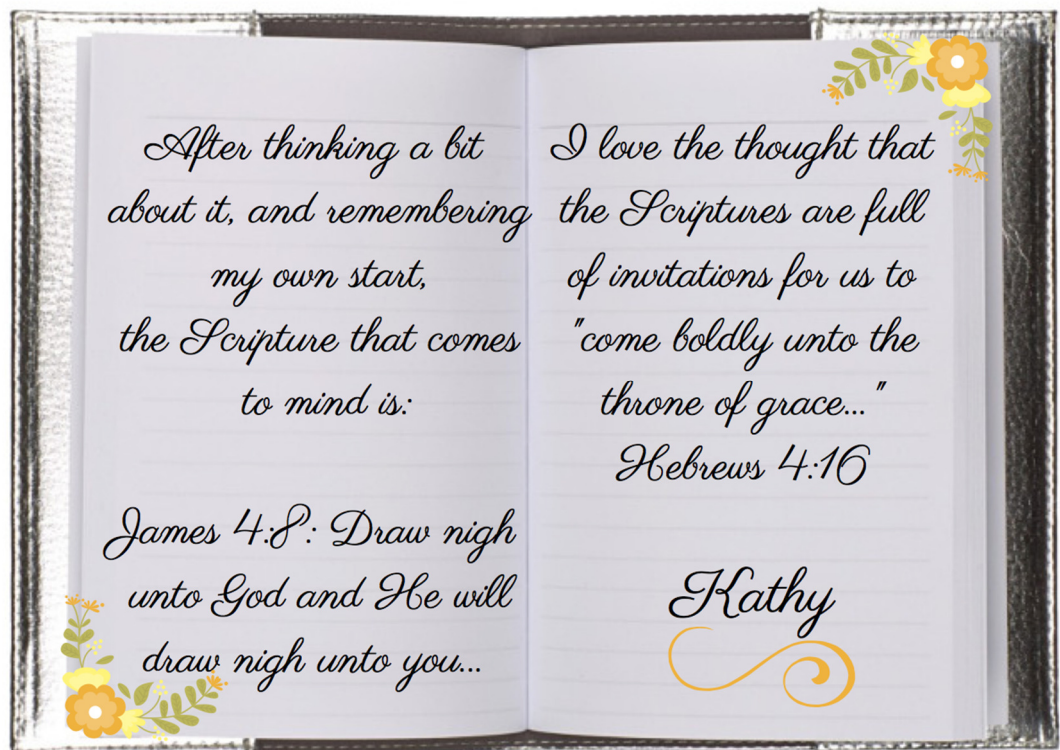 After thinking a bit
about it, and remembering
my own start,
the Scripture that comes
to mind is:
James 4:8: Draw nigh
unto God and He will
draw nigh unto you...
I love the thought that
the Scriptures are full
of invitations for us to
"come boldly unto the
throne of grace..."
Hebrews 4:16
Kathy